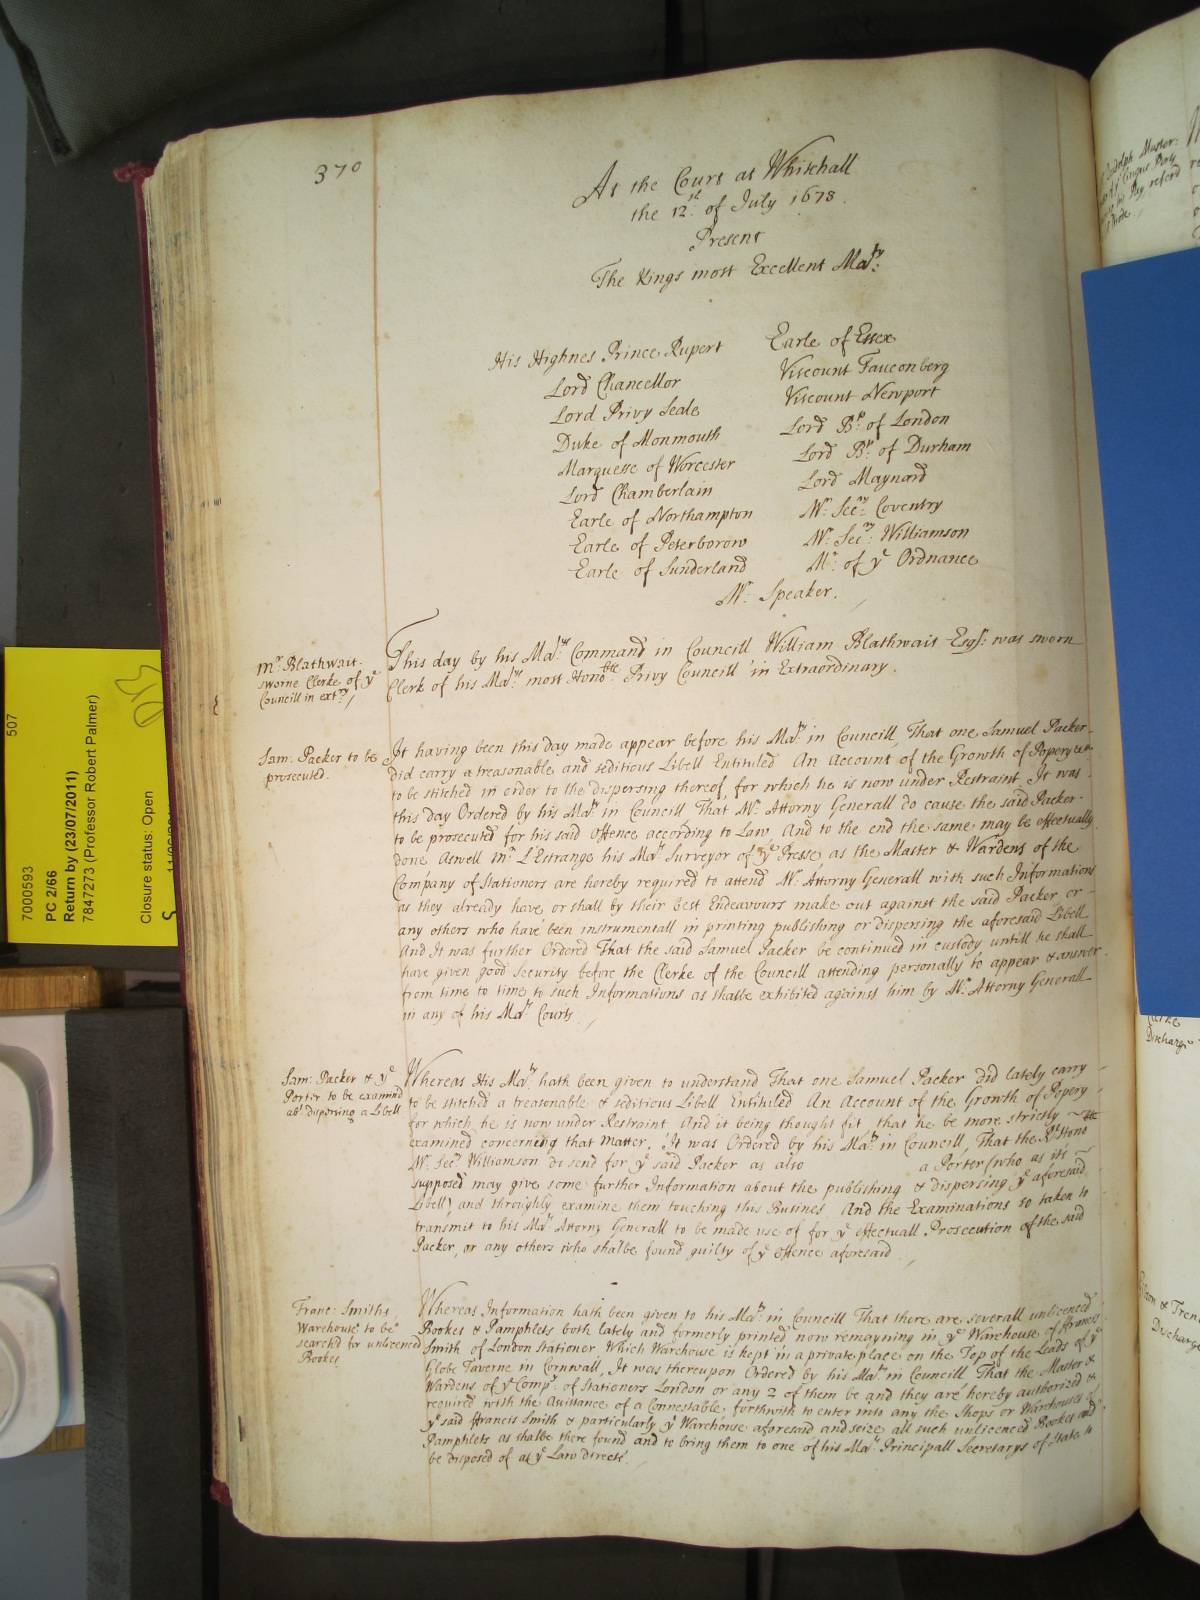 370
At the Court at Whitehall
the 12th of July 1678.
Present
The Kings most Excellent Maty:
His Highnes Prince Rupert
Lord Chancellor
Lord Privy Seale
Duke of Monmouth
Marquesse of Worcester
Lord Chamberlain
Earle of Northampton
Earle of Peterborow
Earle of Sunderland
Earle of Essex
Viscount Fauconberg
Viscount Newport
Lord Bp: of London
Lord Bp: of Durham
Lord Maynard
Mr. Secry: Coventry
Mr. Secry: Williamson
Mr: of ye Ordnance
Mr. Speaker.
Mr. Blathwait
sworne Clerke of ye
Councill in extry:
This day by his Maty's Command in Councill William Blathwait Esqr: was sworn
Clerk of his Maty's most Honoble: Privy Councill in Extraordinary.
Sam: Packer to be
prosecuted.
It having been this day made appear before his Maty: in Councill, That one Samuel Packer
did carry a treasonable and seditious Libell Entituled An Account of the Growth of Popery &ca
to be stitched in order to the dispersing thereof, for which he is now under Restraint It was
this day Ordered by his Maty: in Councill That Mr. Attorny Generall do cause the said Packer
to be prosecuted for his said Offence according to Law. And to the end the same may be effectually
done Aswell Mr. L'Estrange his Mats: Surveyor of ye Presse as the Master & Wardens of the
Company of Stationers are hereby required to attend Mr. Attorny Generall with such Informations
as they already have, or shall by their best Endeavours make out against the said Packer, or
any others who have been instrumentall in printing publishing or dispersing the aforesaid Libell
And It was further Ordered That the said Samuel Packer be continued in custody, untill he shall
have given good Security before the Clerke of the Councill attending personally to appear & answer
from time to time to such Informations as shalbe exhibited against him by Mr. Attorny Generall
in any of his Mats: Courts.
Sam: Packer & ye
Porter to be examind
abt dispersing a Libell
Whereas His Maty: hath been given to understand That one Samuel Packer did lately carry
to be stitched a treasonable & seditious Libell Entituled An Account of the Growth of Popery
for which he is now under Restraint And it being thought fit, that he be more strictly
examined concerning that matter, It was Ordered by his Maty: in Councill, That the Rt. Hono
Mr. Secry. Williamson do send for ye said Packer as also a Porter (who as it is
supposed may give some further Information about the publishing & dispersing ye aforesaid
Libell) and throughly examine them touching this Busines And the Examinations so taken to
transmit to his Mats: Attorny Generall to be made use of for ye effectuall Prosecution of the said
Packer, or any others who shalbe found guilty of ye Offence aforesaid.
Franc: Smiths
Warehouse to be
searchd for unlicenced
Bookes
Whereas Information hath been given to his Maty: in Councill That there are severall unlicenced
Bookes & Pamphlets both lately and formerly printed now remayning in ye Warehouse of ffrancis
Smith of London Stationer, Which Warehouse is kept in a private place on the Top of the Leads of ye
Globe Taverne in Cornwall, It was thereupon Ordered by his Maty: in Councill That the Master &
Wardens of ye Compy: of Stationers London or any 2 of them be and they are hereby authorized &
required with the Assistance of a Connestable, forthwith to enter into any the Shops or Warehouses of
ye said ffrancis Smith & particularly ye Warehouse aforesaid and seize all such unlicenced Bookes and
Pamphlets as shalbe there found and to bring them to one of his Mats: Principall Secretarys of State to
be disposed of as ye Law directs.
507
7000593
PC 2/66
Return by (23/07/2011)
7847273 (Professor Robert Palmer)
Closure status: Open
Discharge